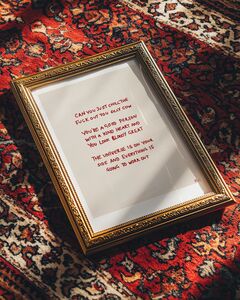 CAN YOU JUST CHILL THE
FUCK OUT YOU SEXY COW
YOU'RE A GOOD PERSON
WITH A KIND HEART AND
YOU LOOK BLOODY GREAT
THE UNIVERSE IS ON YOUR
SIDE AND EVERYTHING IS
GOING TO WORK OUT